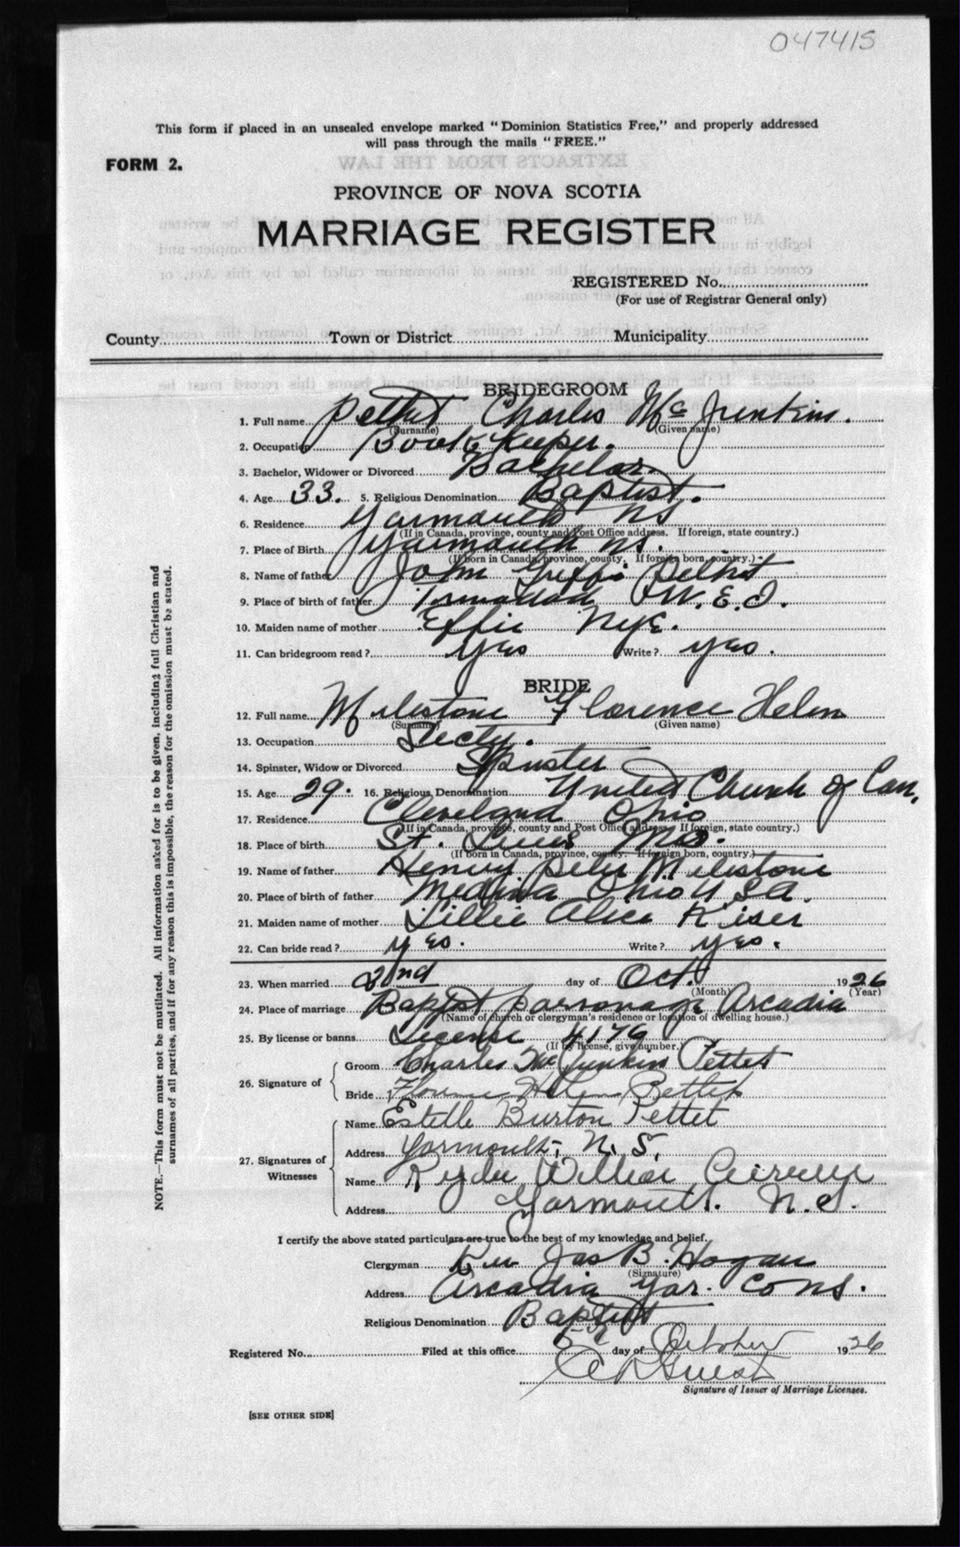 047415
This form if placed in an unsealed envelope marked "Dominion Statistics Free," and properly addressed
will pass through the mails "FREE."
FORM 2.
PROVINCE OF NOVA SCOTIA
MARRIAGE REGISTER
REGISTERED No.
(For use of Registrar General only)
County Town or District Municipality
BRIDEGROOM
1. Full name Pettet Charles Mc Junkins.
(Surname) (Given name)
2. Occupation Book Keeper.
3. Bachelor, Widower or Divorced Bachelor
4. Age 33. 5. Religious Denomination Baptist.
6. Residence Yarmouth NS
(If in Canada, province, county and Post Office address. If foreign, state country.)
7. Place of Birth Yarmouth NS.
(If born in Canada, province, county. If foreign born, country.)
8. Name of father John Pettet
9. Place of birth of father
10. Maiden name of mother Effie Nye.
11. Can bridegroom read? Yes Write? yes.
BRIDE
12. Full name Milestone Florence Helen
(Surname) (Given name)
13. Occupation Secty.
14. Spinster, Widow or Divorced Spinster
15. Age 29. 16. Religious Denomination United Church of Can.
17. Residence Cleveland Ohio
(If in Canada, province, county and Post Office address. If foreign, state country.)
18. Place of birth St. Louis Mo.
(If born in Canada, province, county. If foreign born, country.)
19. Name of father Henry Peter Milestone
20. Place of birth of father Medina Ohio U.S.A.
21. Maiden name of mother Lillie Alice Kiser
22. Can bride read? yes. Write? yes.
23. When married 2nd day of Oct. 1926
(Month) (Year)
24. Place of marriage Baptist parsonage Arcadia
(Name of church or clergyman's residence or location of dwelling house.)
25. By license or banns License 4176
(If by license, give number.)
26. Signature of Groom Charles Mc Junkins Pettet
Bride Florence Helen Pettet
27. Signatures of Witnesses Name Estelle Burton Pettet
Address Yarmouth, N.S.
Name Ryder William
Address Yarmouth. N.S.
I certify the above stated particulars are true to the best of my knowledge and belief.
Clergyman Rev Jas B. Hogan
(Signature)
Address Arcadia Yar. Co NS.
Religious Denomination Baptist
Registered No. Filed at this office 5th day of October 1926
Signature of Issuer of Marriage Licenses.
[SEE OTHER SIDE]
NOTE.—This form must not be mutilated. All information asked for is to be given, including full Christian and
surnames of all parties, and if for any reason this is impossible, the reason for the omission must be stated.